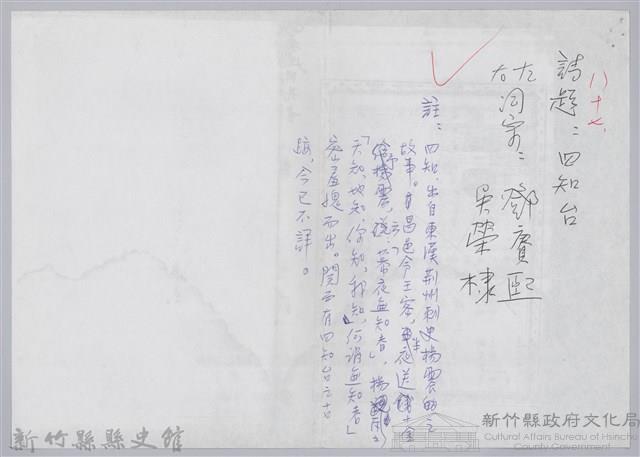 八十七.
詩題：四知台
左
右
詞宗：鄧賡熙
吳榮棣
註：四知，出自東漢荊州刺史楊震的
故事。昌邑令王密，夜送十金
給楊震，說：「暮夜無知者」，楊
「天知，地知，你知，我知，何謂無知者」
密羞愧而出。関西有四知台之古
蹟，今已不詳。
新竹縣縣史館
新竹縣政府文化局
Cultural Affairs Bureau of Hsinchu
County Government